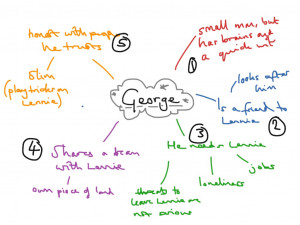 George
①
small man, but
has brains and
a quick wit
②
looks after
him
Is a friend to
Lennie
③
He needs Lennie
jobs
loneliness
threats to
leave Lennie are
not serious
④
Shares a dream
with Lennie
own piece of land
⑤
honest with people
he trusts
Slim
(play tricks on
Lennie)